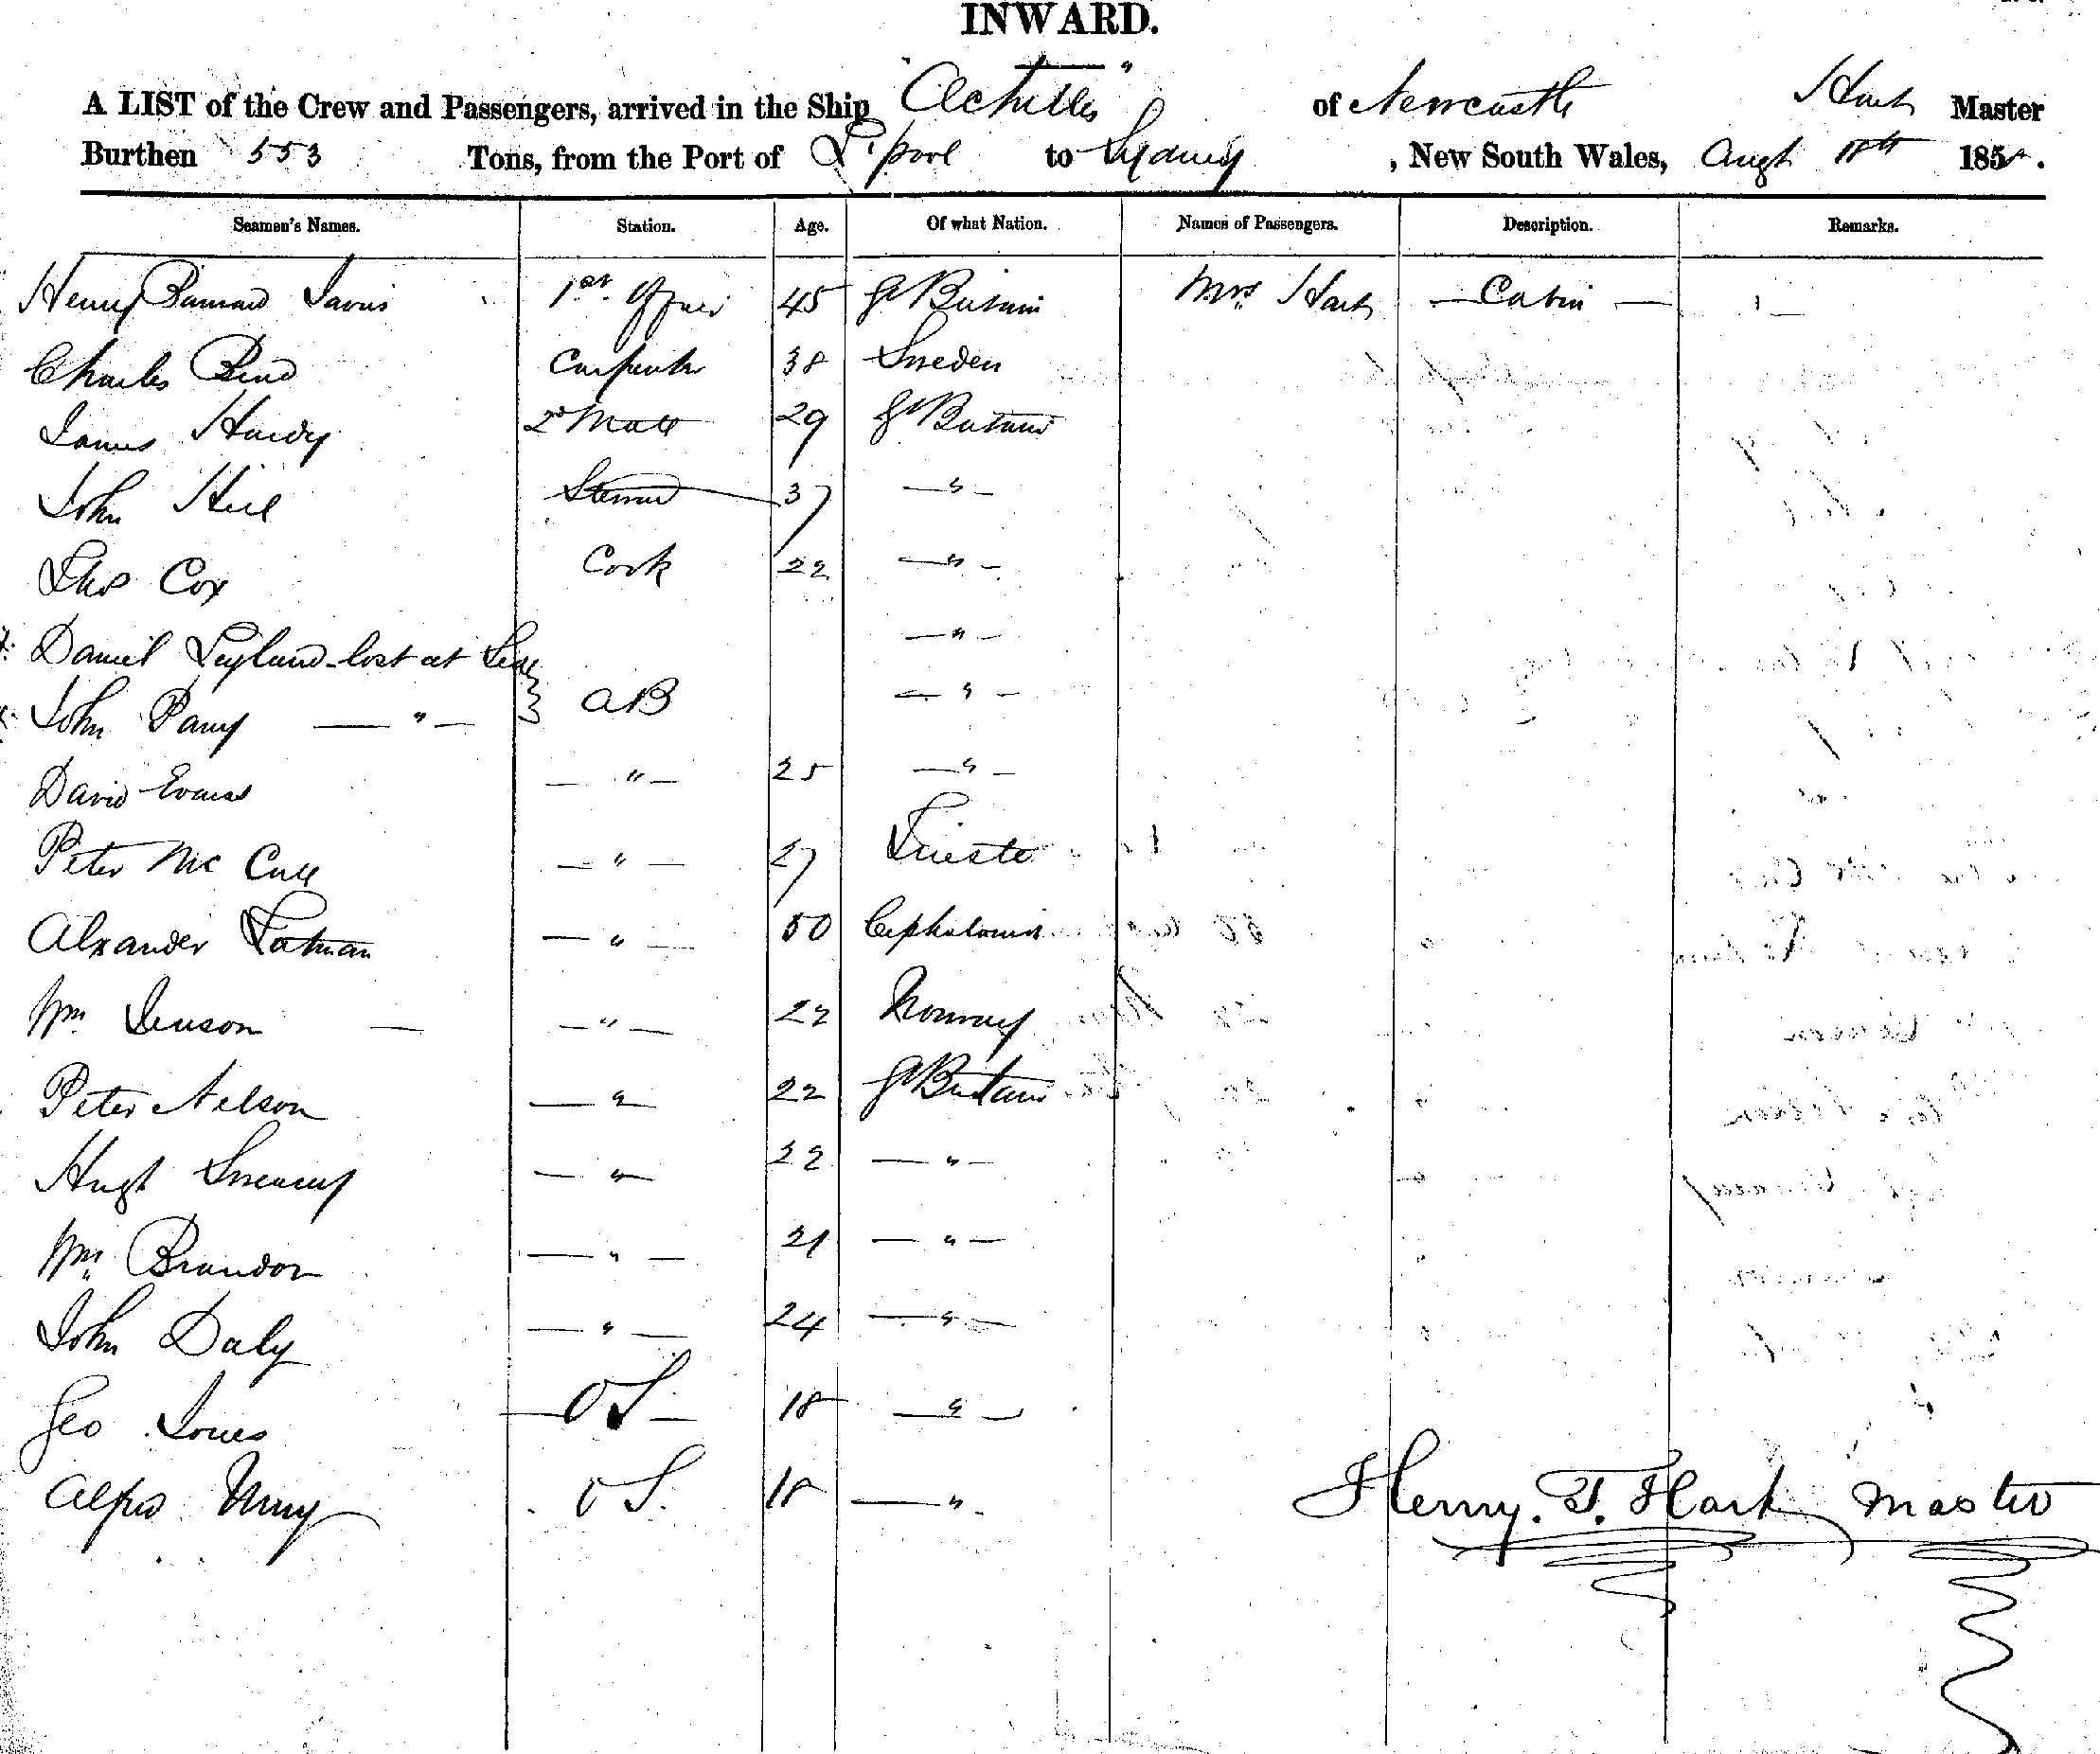 INWARD.
A LIST of the Crew and Passengers, arrived in the Ship "Achilles" of Newcastle Hart Master
Burthen 553 Tons, from the Port of L'pool to Sydney, New South Wales, Augt 185
Seamen's Names. Station. Age. Of what Nation. Names of Passengers. Description. Remarks.
Henry 1st Officer 45 Gt Britain Mrs Hart — Cabin —
Charles Carpenter 38 Sweden
James Hardy 2d Mate 29 Gt Britain
John Hill Steward 37 — " —
Thos Cox Cook 22 — " —
Daniel Leyland lost at Sea — " —
John Parry — " — } AB — " —
David Evans — " — 25 — " —
Peter Mc Call — " — 27 Trieste
Alxander — " — 50 Cephalonia
Wm Jenson — — " — 22 Norway
Peter Nelson — " 22 Gt Britain
Hugh Sweeny — " 22 — " —
Wm Brandon — " — 21 — " —
John Daly — " — 24 — " —
Geo Jones — OS — 18 — " —
Alfred OS. 18 — " -
Henry. T. Hart Master